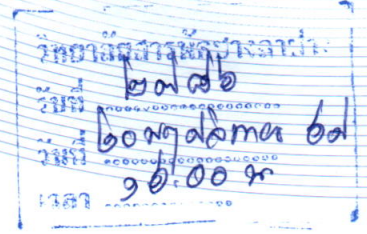 วิทยาลัยสารพัดช่างลำปาง
รับที่ ๒๗๘๖
วันที่ ๒๐ พฤศจิกายน ๖๗
เวลา น